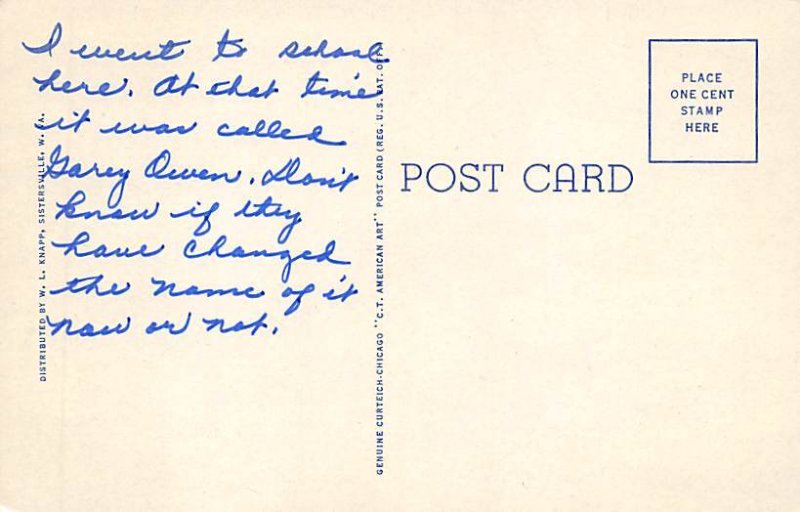 I went to school
here. At that time
it was called
Garey Owen. Don't
know if they
have changed
the name of it
now or not.
DISTRIBUTED BY W. L. KNAPP, SISTERSVILLE, W. VA.
GENUINE CURTEICH-CHICAGO "C.T. AMERICAN ART" POST CARD (REG. U.S. PAT. OFF.)
POST CARD
PLACE
ONE CENT
STAMP
HERE